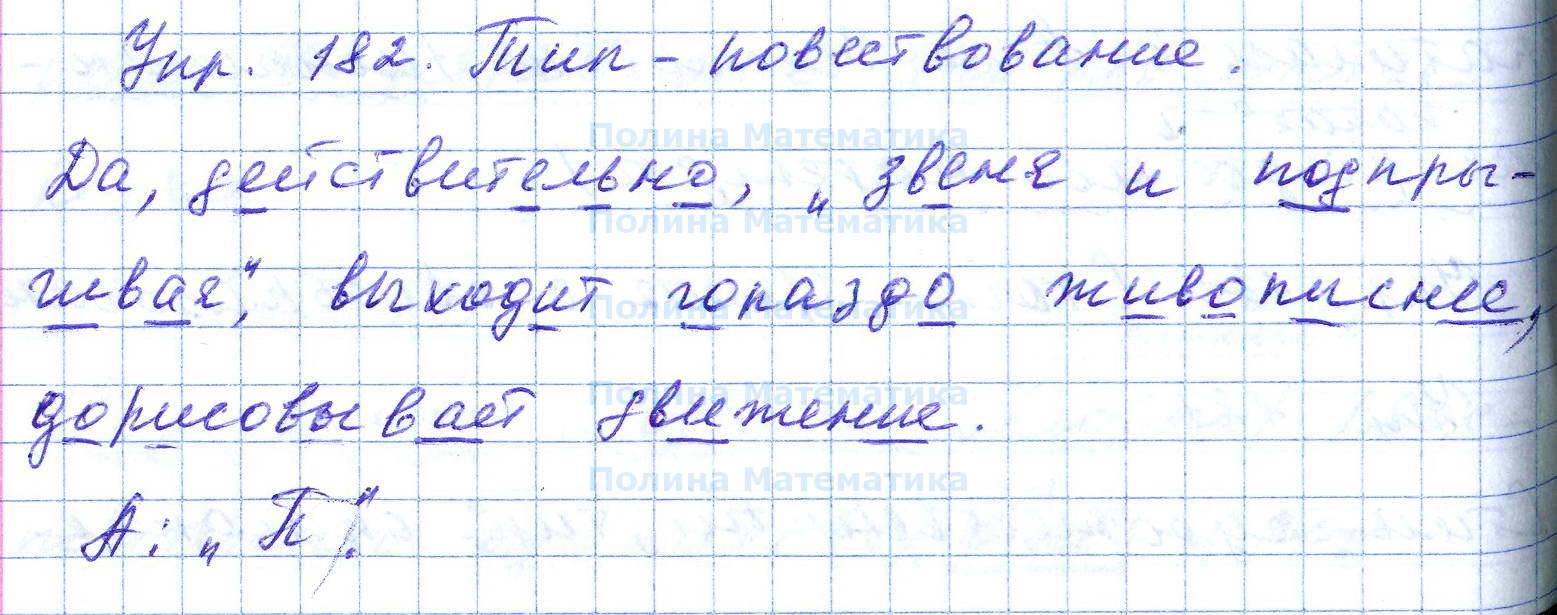 Упр. 182. Тип - повествование.
Полина Математика
Да, действительно, „звеня и подпры-
Полина Математика
гивая“, выходит гораздо живописнее,
Полина Математика
дорисовывает движение.
Полина Математика
Полина Математика
А: „П“.